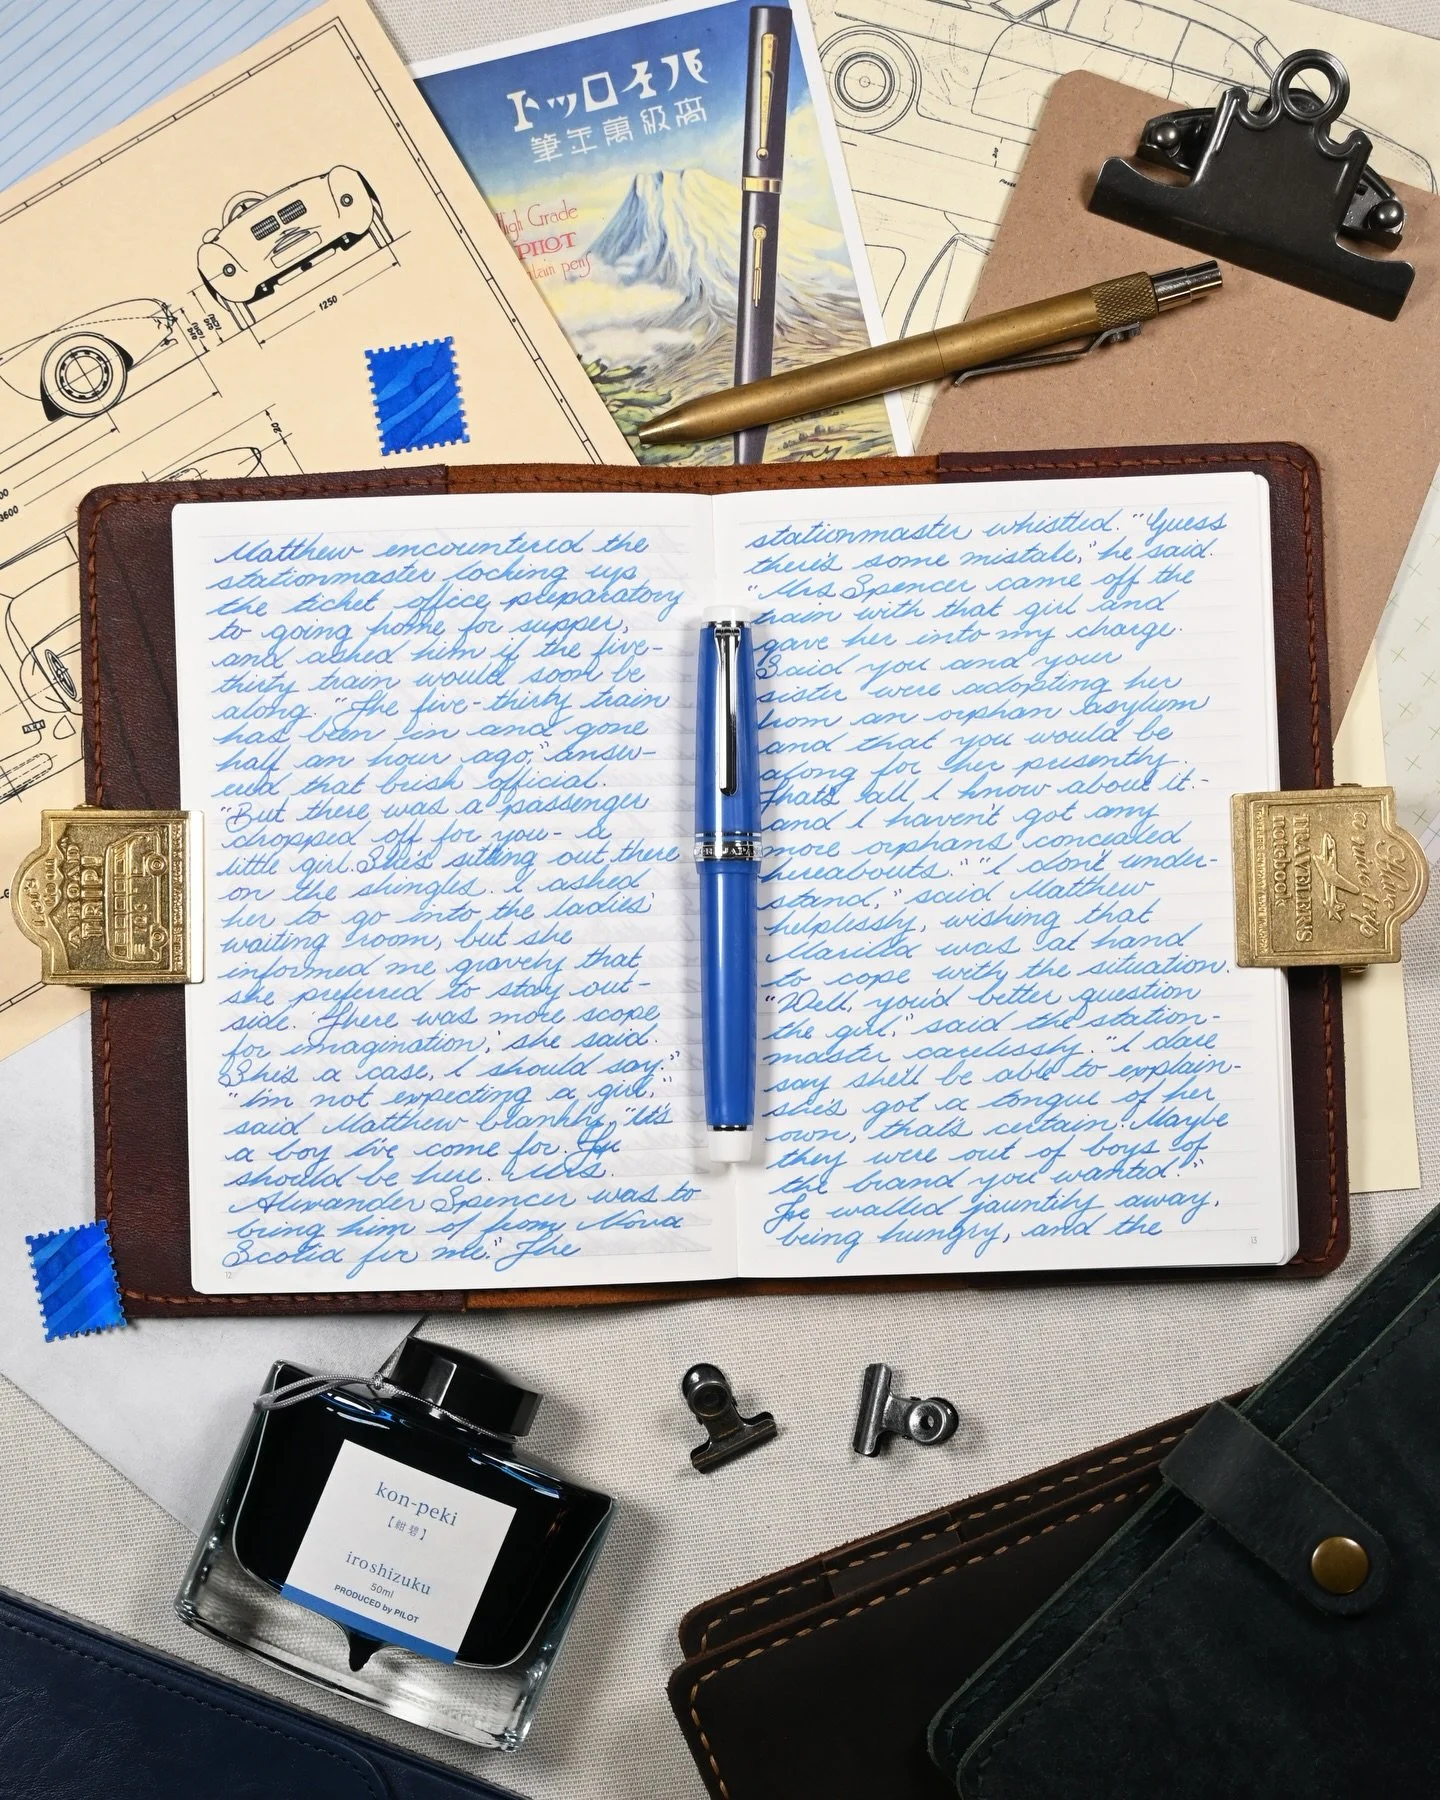 トッロイパ
筆年萬級高
High Grade
PILOT
fountain pens
1250
3600
Matthew encountered the
stationmaster locking up
the ticket office preparatory
to going home for supper,
and asked him if the five-
thirty train would soon be
along. "The five-thirty train
has been in and gone
half an hour ago," answ-
ered that brisk official.
"But there was a passenger
dropped off for you- a
little girl. She's sitting out there
on the shingles. I asked
her to go into the ladies'
waiting room, but she
informed me gravely that
she preferred to stay out-
side. 'There was more scope
for imagination,' she said.
She's a case, I should say."
"I'm not expecting a girl,"
said Matthew blankly. "It's
a boy I've come for. He
should be here. Mrs.
Alexander Spencer was to
bring him of from Nova
Scotia for me." The
12
stationmaster whistled. "Guess
there's some mistake," he said.
"Mrs Spencer came off the
train with that girl and
gave her into my charge.
Said you and your
sister were adopting her
from an orphan asylum
and that you would be
along for her presently.
That's all I know about it.-
and I haven't got any
more orphans concealed
hereabouts." "I don't under-
stand," said Matthew
helplessly, wishing that
Marilla was at hand
to cope with the situation.
"Well, you'd better question
the girl," said the station-
master carelessly. "I dare
say she'll be able to explain-
she's got a tongue of her
own, that's certain. Maybe
they were out of boys of
the brand you wanted."
He walked jauntily away,
being hungry, and the
13
ROAD
TRIP!
Have
a nice trip
TRAVELER'S
notebook
kon-peki
【紺碧】
iroshizuku
50ml
PRODUCED by PILOT